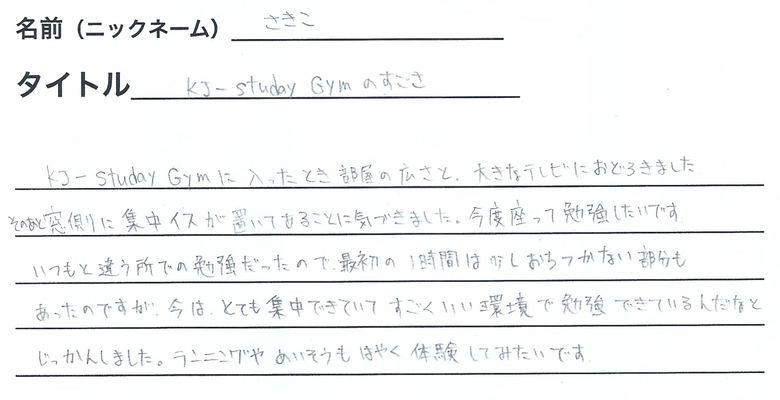 名前（ニックネーム） さきこ
タイトル KJ-studay Gymのすごさ
KJ-studay Gymに入ったとき部屋の広さと、大きなテレビにおどろきました
そのあと窓側に集中イスが置いてあることに気づきました。今度座って勉強したいです
いつもと違う所での勉強だったので、最初の1時間は少しおちつかない部分も
あったのですが、今は、とても集中できていてすごくいい環境で勉強できているんだなと
じっかんしました。ランニングやめいそうもはやく体験してみたいです